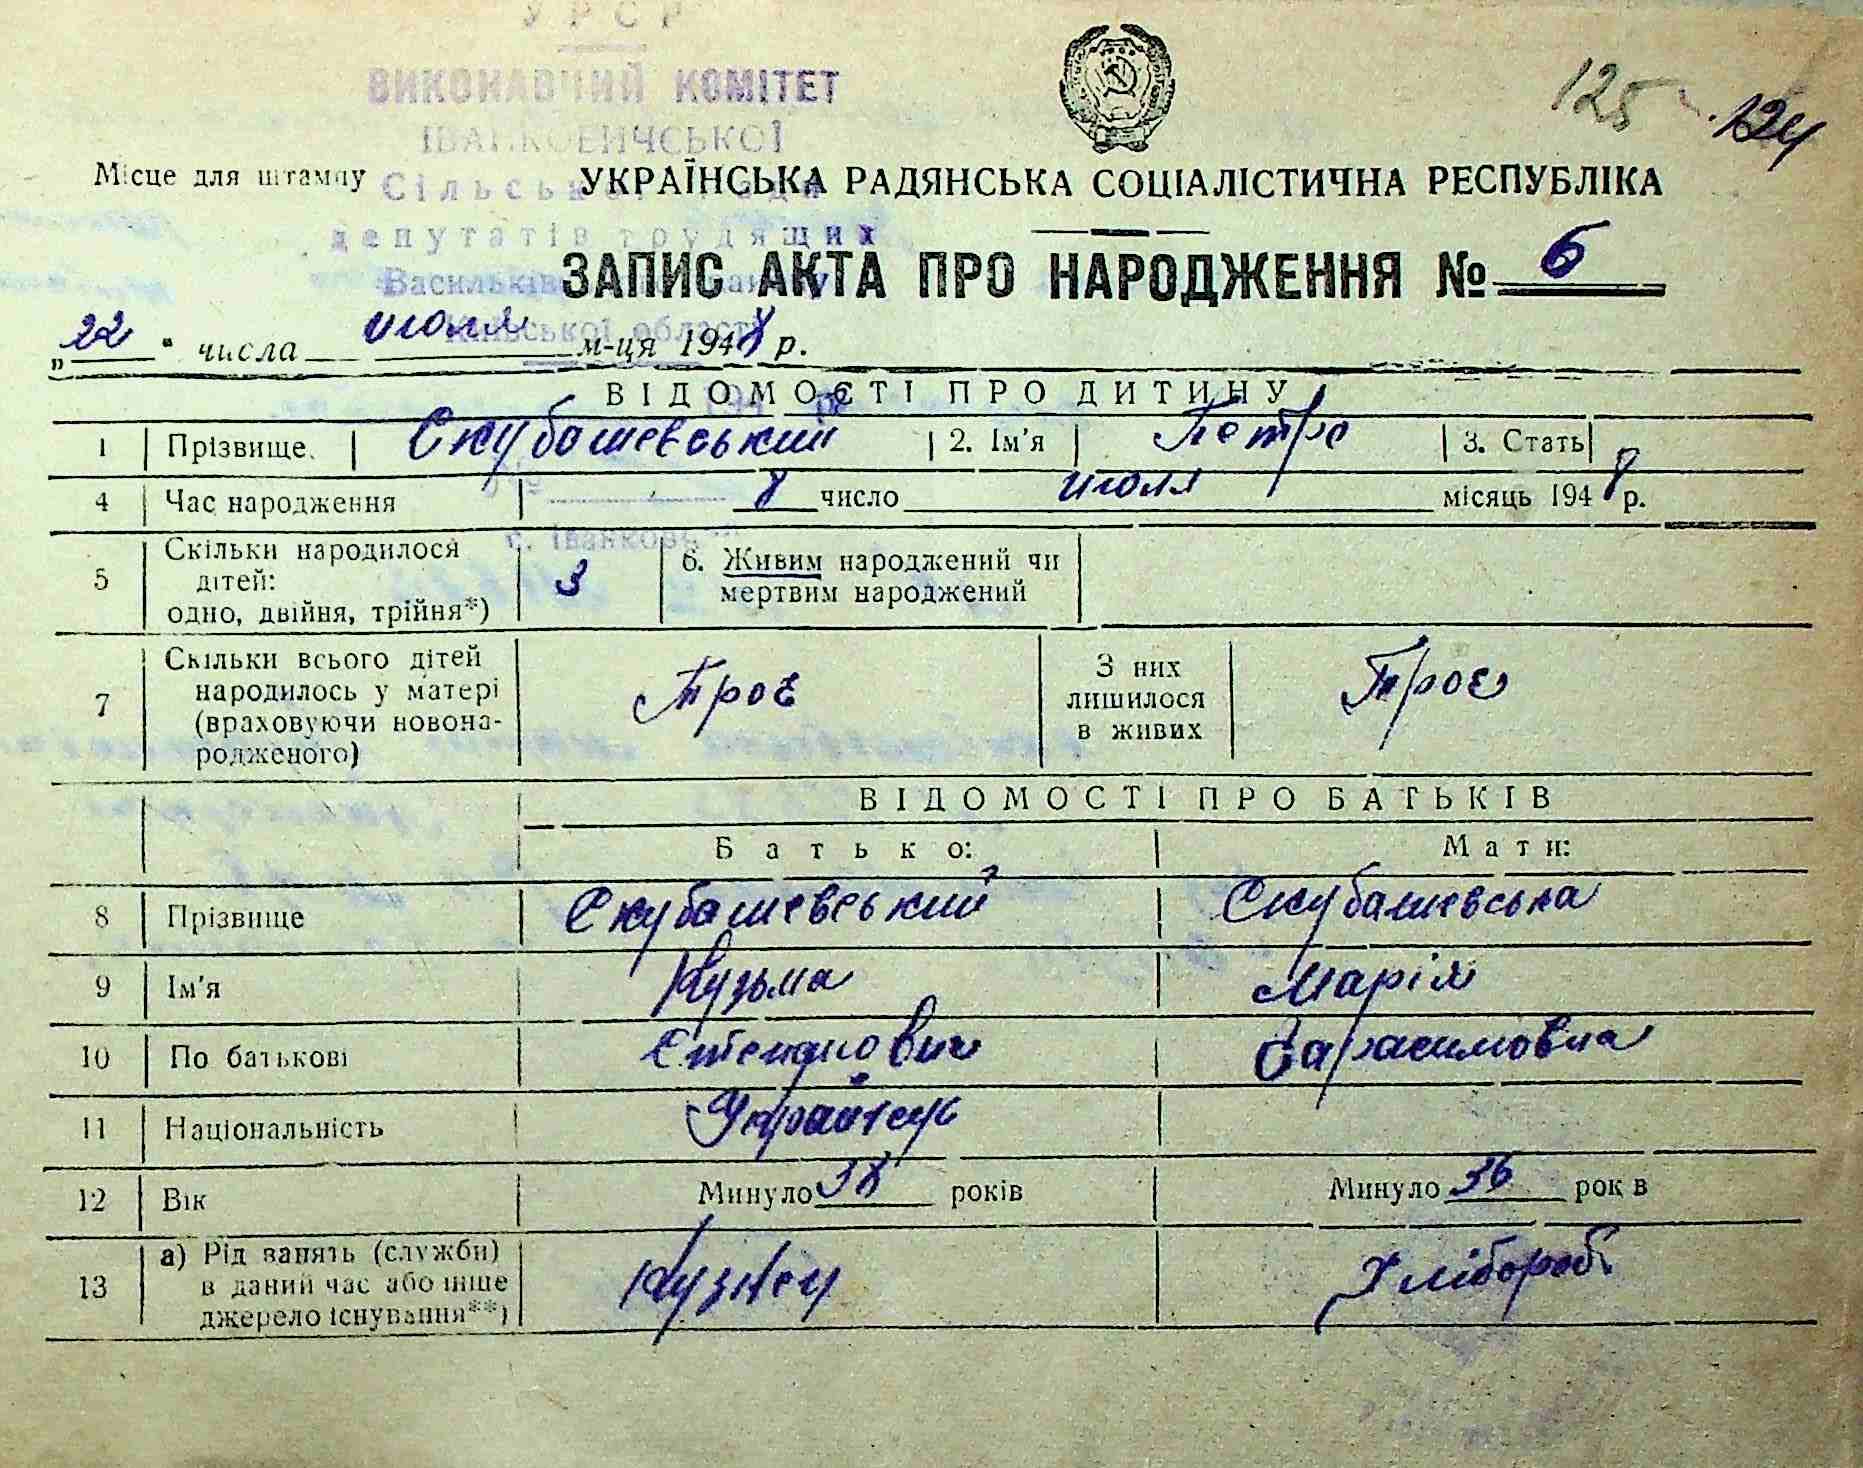 УРСР
ВИКОНАВЧИЙ КОМІТЕТ
ІВАНКОВИЧСЬКОЇ
Сільської Ради
депутатів трудящих
Васильківського району
Київської області
194 р.
с. Іванковичі
125 124
Місце для штампу
УКРАЇНСЬКА РАДЯНСЬКА СОЦІАЛІСТИЧНА РЕСПУБЛІКА
ЗАПИС АКТА ПРО НАРОДЖЕННЯ № 6
„22" числа июля м-ця 1948 р.
ВІДОМОСТІ ПРО ДИТИНУ
1 Прізвище. Скубашевський 2. Ім'я Петро 3. Стать
4 Час народження 8 число июля місяць 1948 р.
5 Скільки народилося дітей: одно, двійня, трійня*) 3 6. Живим народжений чи мертвим народжений
7 Скільки всього дітей народилось у матері (враховуючи новонародженого) Троє З них лишилося в живих Троє
ВІДОМОСТІ ПРО БАТЬКІВ
Батько: Мати:
8 Прізвище Скубашевський Скубашевська
9 Ім'я Кузьма Марія
10 По батькові Степанович Гарасимовна
11 Національність
12 Вік Минуло 38 років Минуло 36 років
13 а) Рід занять (служби) в даний час або інше джерело існування**) Кузнец Хлібороб